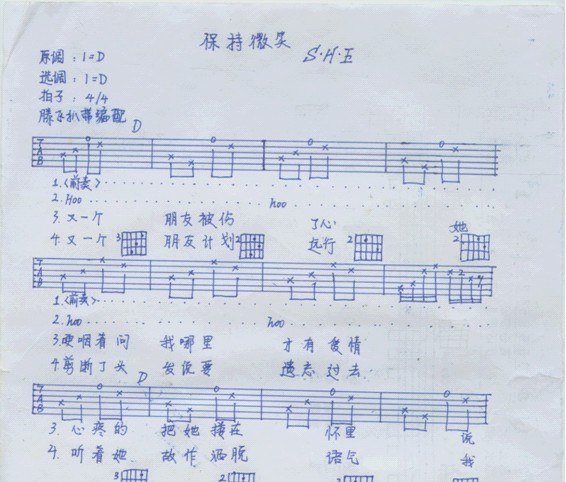 保持微笑
S·H·E
原调：1=D
选调：1=D
拍子：4/4
滕飞扒带编配
D
TAB
1.〈前奏〉
2. Hoo hoo
3. 又一个 朋友被伤 了心 她
4. 又一个 朋友计划 远行
3 2 2 2
TAB
1.〈前奏〉
2. hoo hoo
3. 哽咽着问 我哪里 才有爱情
4. 剪断了头 发说要 遗忘过去
D
TAB
3. 心疼的 把她搂在 怀里 说
4. 听着她 故作洒脱 语气 我